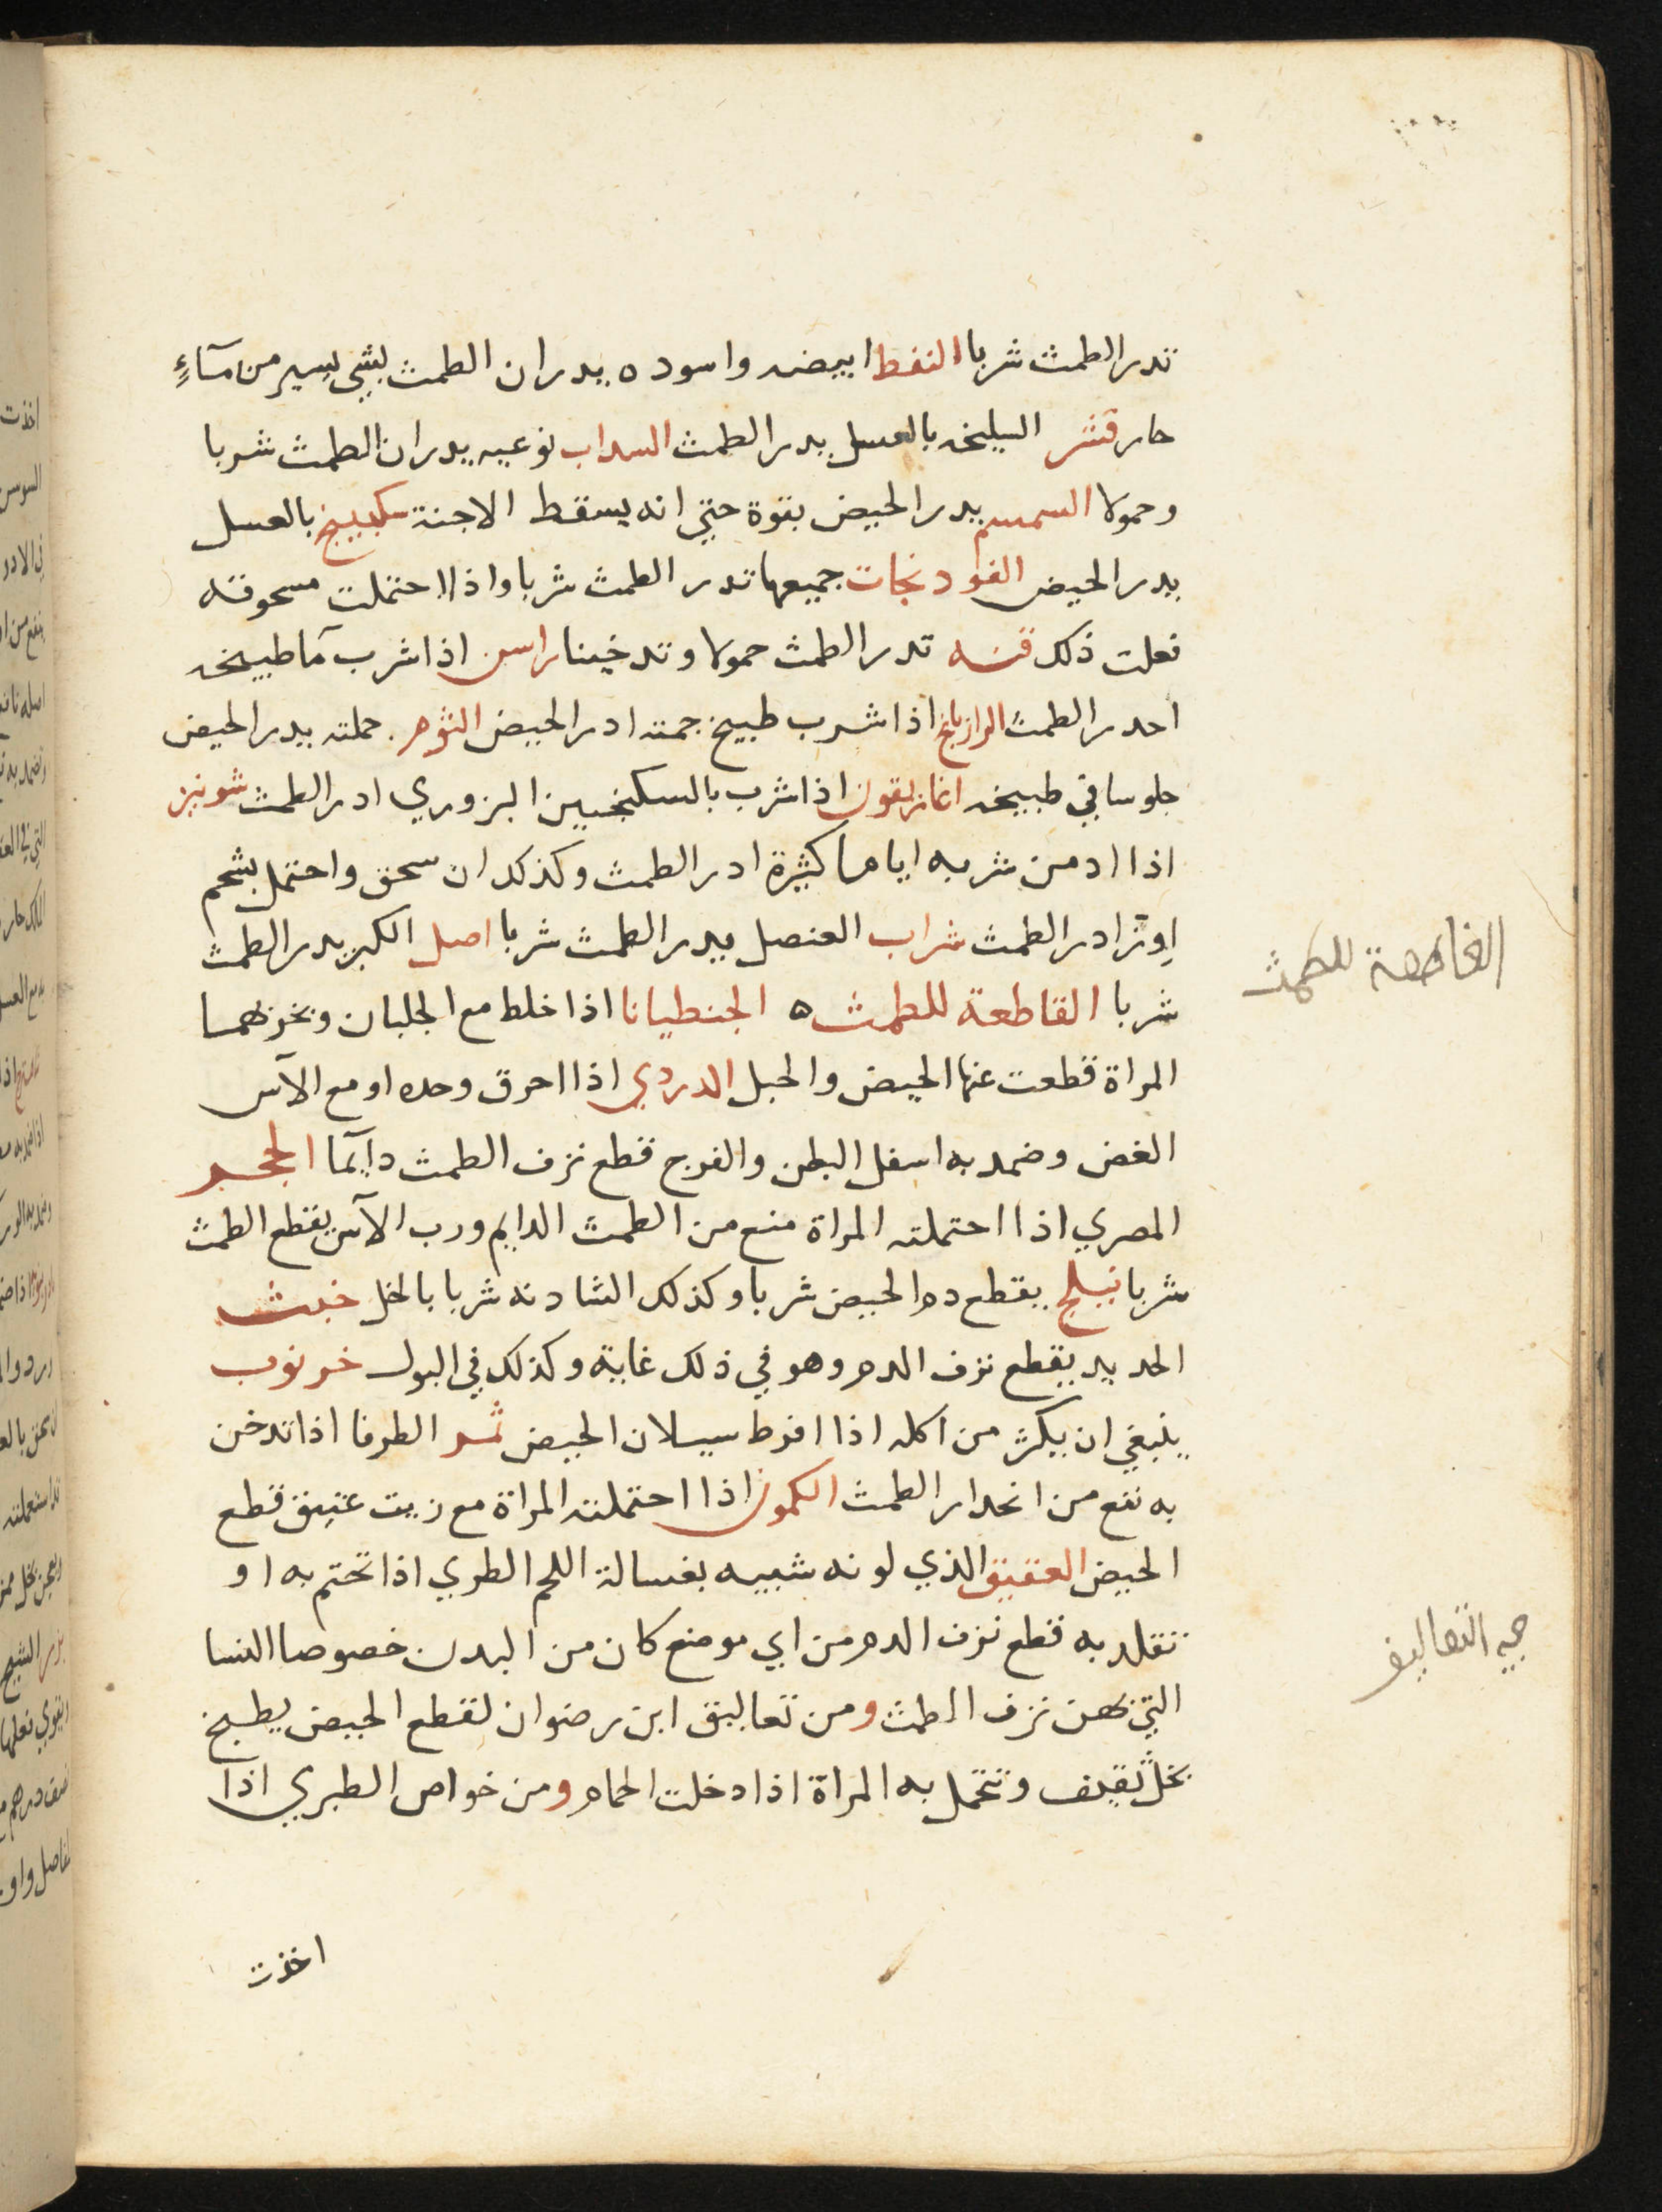 تدر الطمث شربا النفط ابيضه واسوده يدران الطمث بشي يسير من مآءٍ
حار قشر السليخه بالعسل يدر الطمث السداب نوعيه يدران الطمث شربا
وحمولا السمسم يدر الحيض بقوة حتي انه يسقط الاجنة سكبينج بالعسل
يدر الحيض الفودنجات جميعها تدر الطمث شربا واذا احتملت مسحوقه
فعلت ذلك قنه تدر الطمث حمولا وتدخينا راسن اذا شرب مآ طبيخه
احدر الطمث الرازيانج اذا شرب طبيخ جمته ادر الحيض الثوم حملته يدر الحيض
جلوسا في طبيخه اغاريقون اذا شرب بالسكنجبين البزوري ادر الطمث شونيز
اذا ادمن شربه اياما كثيرة ادر الطمث وكذلك ان سحق واحتمل بشحم
اوز ادر الطمث شراب العنصل يدر الطمث شربا اصل الكبر يدر الطمث
شربا القاطعة للطمث ه الجنطيانا اذا خلط مع الجلبان وبخر بهما
المراة قطعت عنها الحيض والحبل الدردي اذا احرق وحده او مع الآس
الغض وضمد به اسفل البطن والفرج قطع نزف الطمث دآيما الحجر
المصري اذا احتملته المراة منع من الطمث الدايم ورب الآس يقطع الطمث
شربا نيلج يقطع دم الحيض شربا وكذلك الشادنه شربا بالخل خبث
الحديد يقطع نزف الدم وهو في ذلك غاية وكذلك في البول خرنوب
ينبغي ان يكثر من اكله اذا افرط سيلان الحيض ثمر الطرفا اذا تدخن
به نفع من انحدار الطمث الكمون اذا احتملته المراة مع زيت عتيق قطع
الحيض العقيق الذي لونه شبيه بغسالة اللحم الطري اذا تختم به او
تقلد به قطع نزف الدم من اي موضع كان من البدن خصوصا النسا
التي بهن نزف الطمث ومن تعاليق ابن رضوان لقطع الحيض يطبخ
بخل ثقيف وتتحمل به المراة اذا دخلت الحمام ومن خواص الطبري اذا
اخذت
القاطعة للطمث
التعاليق